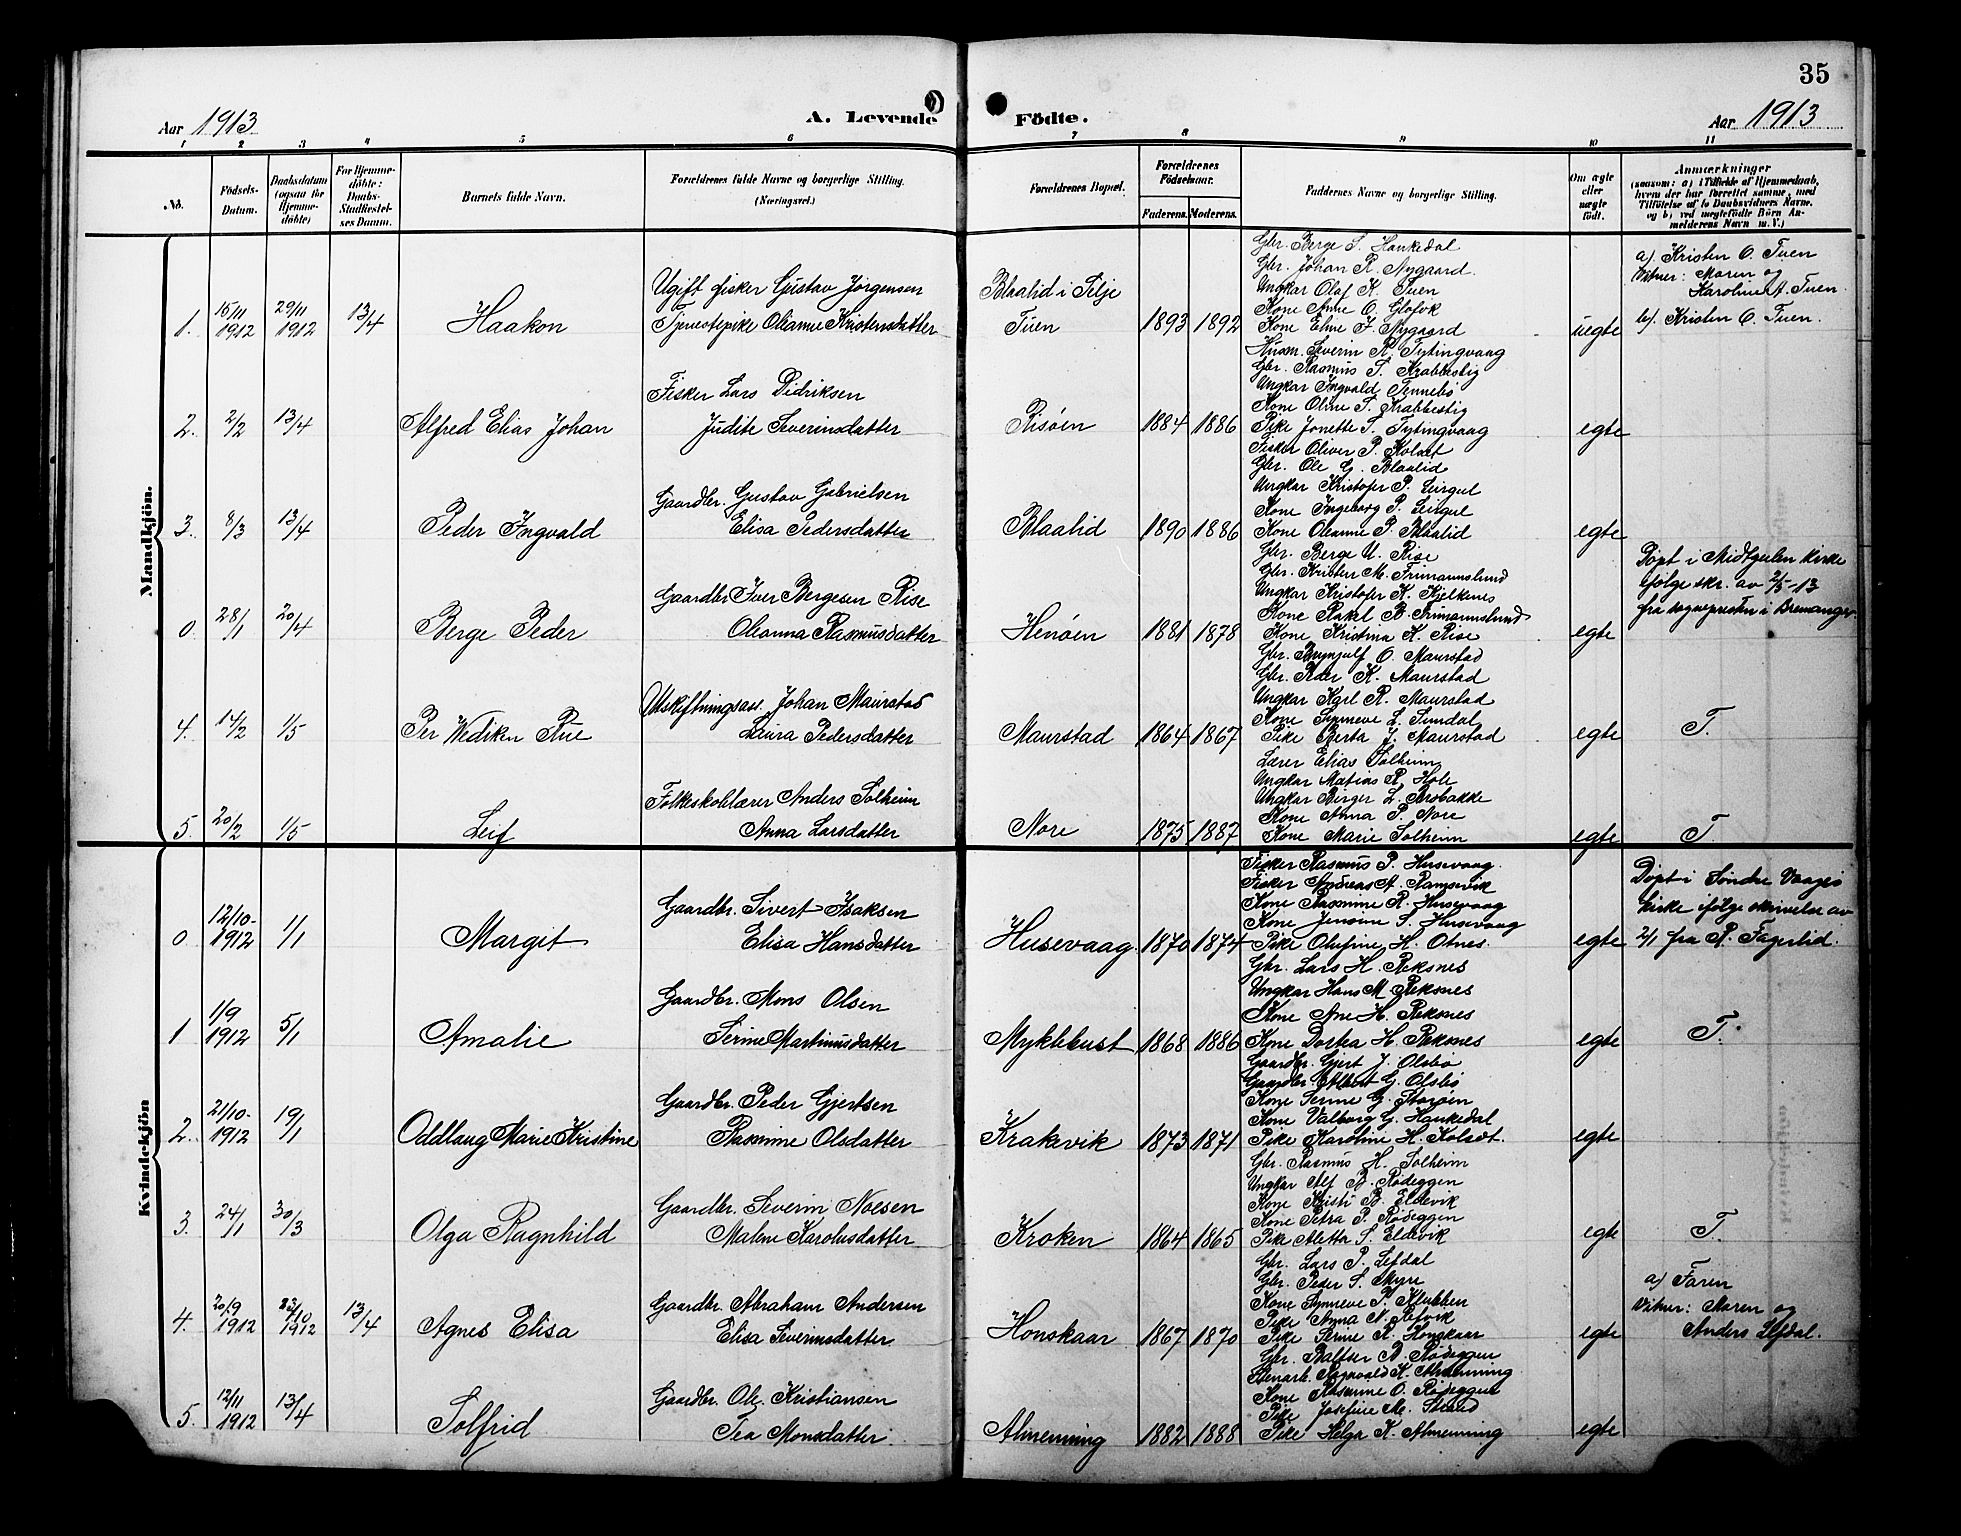 35
Aar 1913
A. Levende Födte.
Aar 1913
1 2 3 4 5 6 7 8 9 10 11
No.
Födsels-Datum.
Daabsdatum (ogsaa for Hjemme-döbte)
For Hjemme-döbte: Daabs-Stadfæstel-ses Datum.
Barnets fulde Navn.
Forældrenes fulde Navne og borgerlige Stilling. (Næringsvei.)
Forældrenes Bopæl.
Forældrenes Födselsaar.
Faderens. Moderens.
Faddernes Navne og borgerlige Stilling.
Om ægte eller uægte födt.
Anmærkninger
(saasom: a) i Tilfælde af Hjemmedaab,
hvem der har forrettet samme, med
Tilföielse af to Daabsvidners Navne.
og b) ved uægtefödte Börn An-
melderens Navn m.V.)
Mandkjön.
1. 15/11 1912 29/11 1912 13/4 Haakon
Ugift fisker Gustav Jörgensen
Tjenestepike Oleanne Kristensdatter
Blaalid i Selje
Tuen 1893 1892
Gbr. Berge S. Haukedal
Gbr. Johan R. Nygaard
Ungkar Olaf K. Tuen
Kone Anne O. Glofok
Kone Eline J. Nygaard
uegte
a) Kristen O. Tuen
Vitner: Maren og
Karoline A. Tuen
b) Kristen O. Tuen.
2. 2/2 13/4 Alfred Elias Johan
Fisker Lars Didriksen
Judite Severinsdatter
Risøen 1884 1886
Husm. Severin R. Tytingvaag
Gbr. Rasmus S. Krabbestig
Ungkar Ingvald Tennebø
Kone Oline S. Krabbestig
Pike Jonette S. Tytingvaag
egte
3. 8/3 13/4 Peder Ingvald
Gaardbr. Gustav Gabrielsen
Elisa Pedersdatter
Blaalid 1890 1886
Fisker Oliver P. Kolset
Gbr. Ole G. Blaalid
Ungkar Kristofer P. Leirgul
Kone Ingeborg P. Leirgul
Kone Oleanne P. Blaalid
egte
0 28/1 20/4 Berge Peder
Gaardbr. Iver Bergesen Rise
Oleanna Rasmusdatter
Henøen 1881 1878
Gbr. Berge U. Rise
Gbr. Kristen M. Frimannslund
Ungkar Kristofer K. Kjelkenes
Kone Rakel B. Frimannslund
Kone Kristina K. Rise
egte
Døpt i Midtgulen kirke
ifølge skr. av 2/5-13
fra sognepresten i Bremanger
4. 14/2 1/5 Per Wediken Rue
Utskiftningsass. Johan Maurstad
Laura Pedersdatter
Maurstad 1864 1867
Gbr. Brynjulf O. Maurstad
Gbr. Peder K. Maurstad
Ungkar Karl R. Maurstad
Kone Synneve L. Sundal
Pike Berta J. Maurstad
egte T.
5. 20/2 1/5 Leif
Folkeskolelærer Anders Solheim
Anna Larsdatter
Nore 1875 1887
Lærer Elias Solheim
Ungkar Matias R. Hole
Ungkar Birger L. Brobakke
Kone Anna P. Nore
Kone Marie Solheim
egte T.
Kvindekjön
0 12/10-1912 1/1 Margit
Gaardbr. Sivert Isaksen
Elisa Hansdatter
Husevaag 1870 1874
Fisker Rasmus P. Husevaag
Fisker Andreas A. Ramsevik
Kone Rasmine R. Husevaag
Kone Jensine S. Husevaag
Pike Olufine H. Otnes.
egte
Døpt i Søndre Vaagsø
kirke ifølge skrivelse av
2/1 fra R. Fagerlid.
1 1/9 1912 5/1 Amalie
Gaardbr. Mons Olsen
Serine Martinusdatter
Myklebust 1868 1886
Gbr. Lars H. Reksnes
Ungkar Hans M. Reksnes
Kone Ane H. Reksnes
Kone Dortea H. Reksnes
egte T.
2. 21/10-1912 19/1 Oddlaug Marie Kristine
Gaardbr. Peder Gjertsen
Rasmine Olsdatter
Krakevik 1873 1871
Gaardbr. Gjert J. Olsbø
Gaardbr. Albert G. Olsbø
Kone Serine G. Storøen
Kone Valborg G. Haukedal
Pike Karoline H. Kolset.
egte
3. 24/1 30/3 Olga Ragnhild
Gaardbr. Severin Noesen
Malene Karolusdatter
Kroken 1864 1865
Gbr. Rasmus H. Solheim
Ungkar Alf R. Rødeggen
Kone Kristi B. Eldevik
Kone Petra P. Rødeggen
Pike Aletta S. Eldevik
egte T.
4. 20/9 1912 23/10 1912 13/4 Agnes Elisa
Gaardbr. Abraham Andersen
Elisa Severinsdatter
Honskaar 1867 1870
Gbr. Lars P. Lefdal
Gbr. Peder S. Myre
Kone Synneve P. Klubben
Pike Anna N.
Pike Serine R. Hongkaar
egte
a) Faren
Vitner: Maren og
Anders Lefdal.
5. 12/11 1912 13/4 Solfrid
Gaardbr. Ole Kristiansen
Tea Monsdatter
Almenning 1882 1888
Gbr. Baltser B. Rødeggen
Ragnvald K. Almenning
Kone Rasmine O. Rødeggen
Pike Josefine M. Strand
Pike Helga K. Almenning
egte